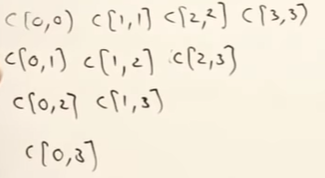 C[0,0] C[1,1] C[2,2] C[3,3]
C[0,1] C[1,2] C[2,3]
C[0,2] C[1,3]
C[0,3]